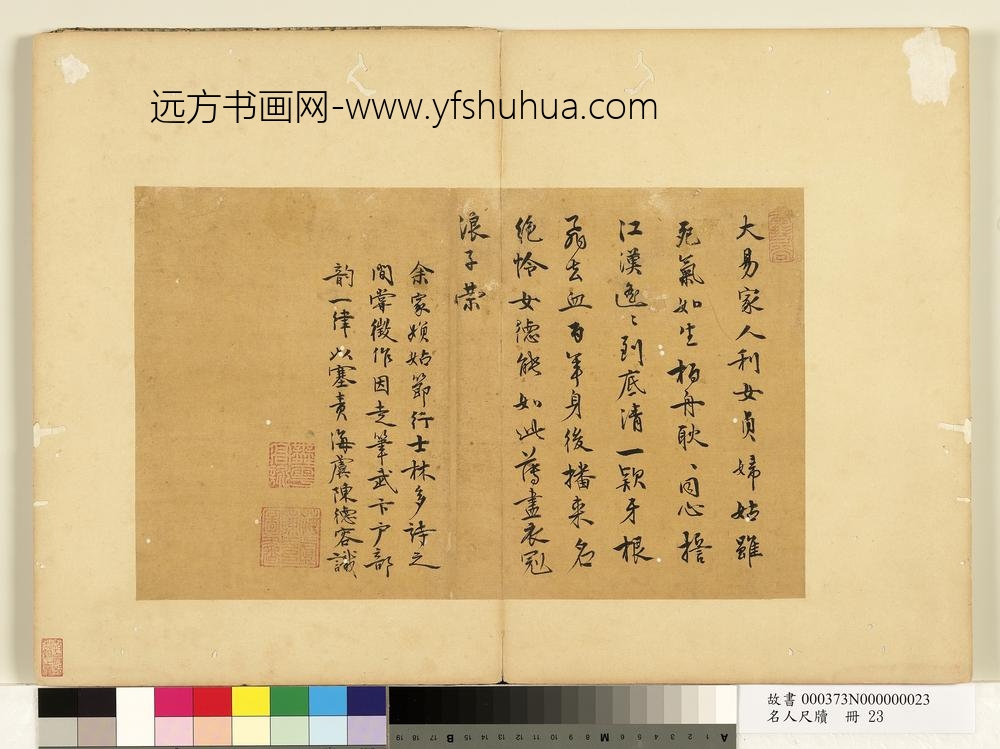 远方书画网-www.yfshuhua.com
大易家人利女貞婦姑雖
死氣如生柏舟耿〻同心
江漢遙〻到底清一顆牙根
去血百年身後播來名
絕怜女德能如此盡衣冠
浪子榮
余家媍姑節行士林多詩之
間嘗徵作因走筆武卞戶部
韵一律以塞責海虞陳德容識
故書 000373N000000023
名人尺牘 冊 23